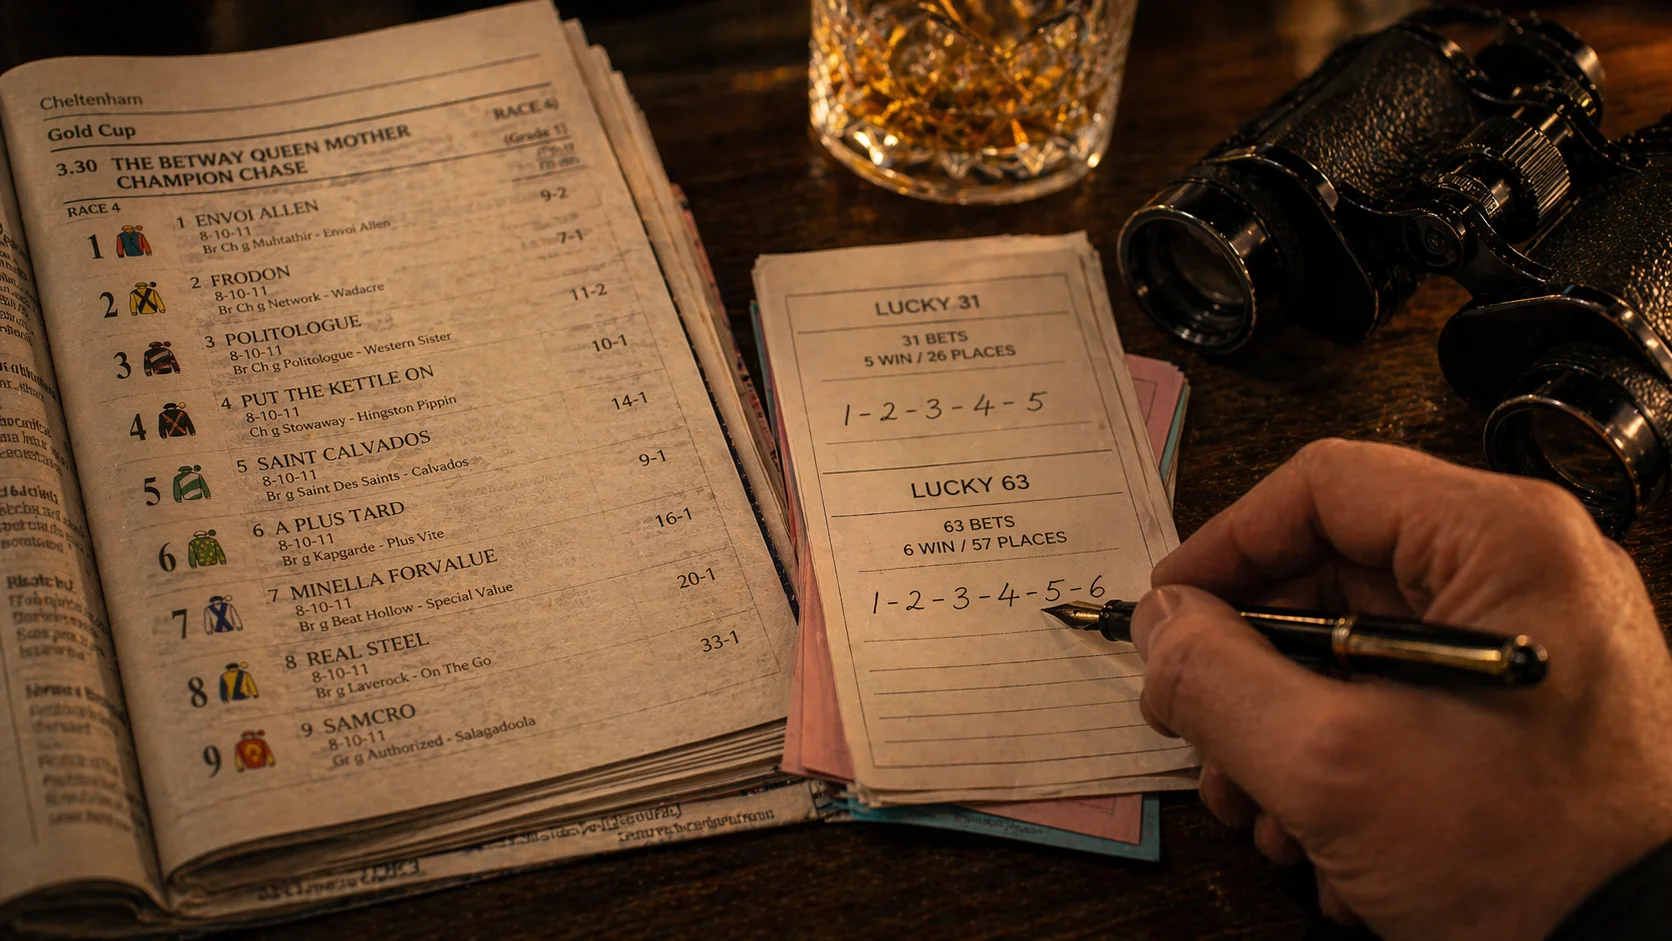 Cheltenham
Gold Cup
RACE 4)
3.30 THE BETWAY QUEEN MOTHER
CHAMPION CHASE
(Grade 1)
RACE 4
1 1 ENVOI ALLEN 9-2
8-10-11
Br Ch g Muhtathir - Envoi Allen
2 2 FRODON 7-1
8-10-11
Br Ch g Network - Wadacre
3 3 POLITOLOGUE 11-2
8-10-11
Br Ch g Politologue - Western Sister
4 4 PUT THE KETTLE ON 10-1
8-10-11
Ch g Stowaway - Hingston Pippin
5 5 SAINT CALVADOS 14-1
8-10-11
Br g Saint Des Saints - Calvados
6 6 A PLUS TARD 9-1
8-10-11
Br g Kapgarde - Plus Vite
7 7 MINELLA FORVALUE 16-1
8-10-11
Br g Beat Hollow - Special Value
8 8 REAL STEEL 20-1
8-10-11
Br g Laverock - On The Go
9 9 SAMCRO 33-1
8-10-11
Gr g Authorized - Salagadoola
LUCKY 31
31 BETS
5 WIN / 26 PLACES
1-2-3-4-5
LUCKY 63
63 BETS
6 WIN / 57 PLACES
1-2-3-4-5-6